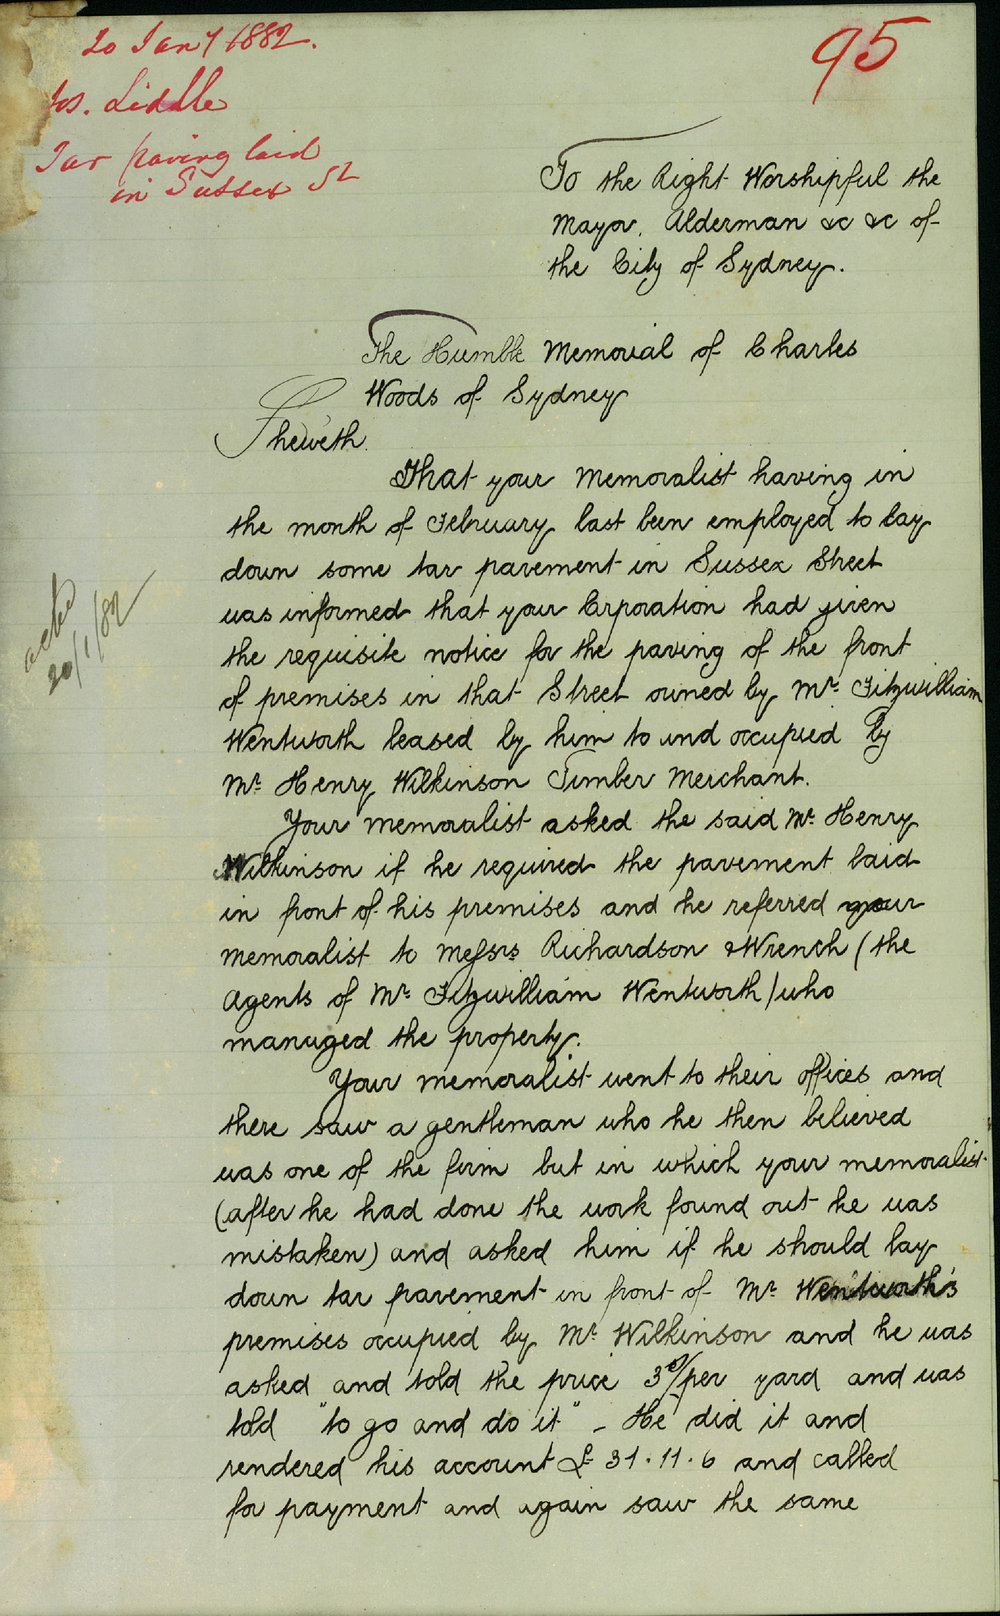 20 Jany 1882.
95
Jos. Liddle
Tar paving laid
in Sussex St
To the Right Worshipful the
Mayor, Alderman &c &c of
the City of Sydney.
The Humble Memorial of Charles
Woods of Sydney
Sheweth.
That your Memoralist having in
the month of February last been employed to lay
down some tar pavement in Sussex Street
was informed that your Corporation had given
the requisite notice for the paving of the front
of premises in that Street owned by Mr. Fitzwilliam
Wentworth leased by him to and occupied by
Mr. Henry Wilkinson Timber Merchant.
Your memoralist asked the said Mr. Henry
Wilkinson if he required the pavement laid
in front of his premises and he referred your
memoralist to Messrs Richardson & Wrench (the
Agents of Mr. Fitzwilliam Wentworth) who
managed the property.
Your memoralist went to their offices and
there saw a gentleman who he then believed
was one of the firm but in which your memoralist
(after he had done the work found out he was
mistaken) and asked him if he should lay
down tar pavement in front of Mr. Wentworth's
premises occupied by Mr. Wilkinson and he was
asked and told the price 3/9 per yard and was
told "to go and do it" - He did it and
rendered his account £31.11.6 and called
for payment and again saw the same
20/1/82